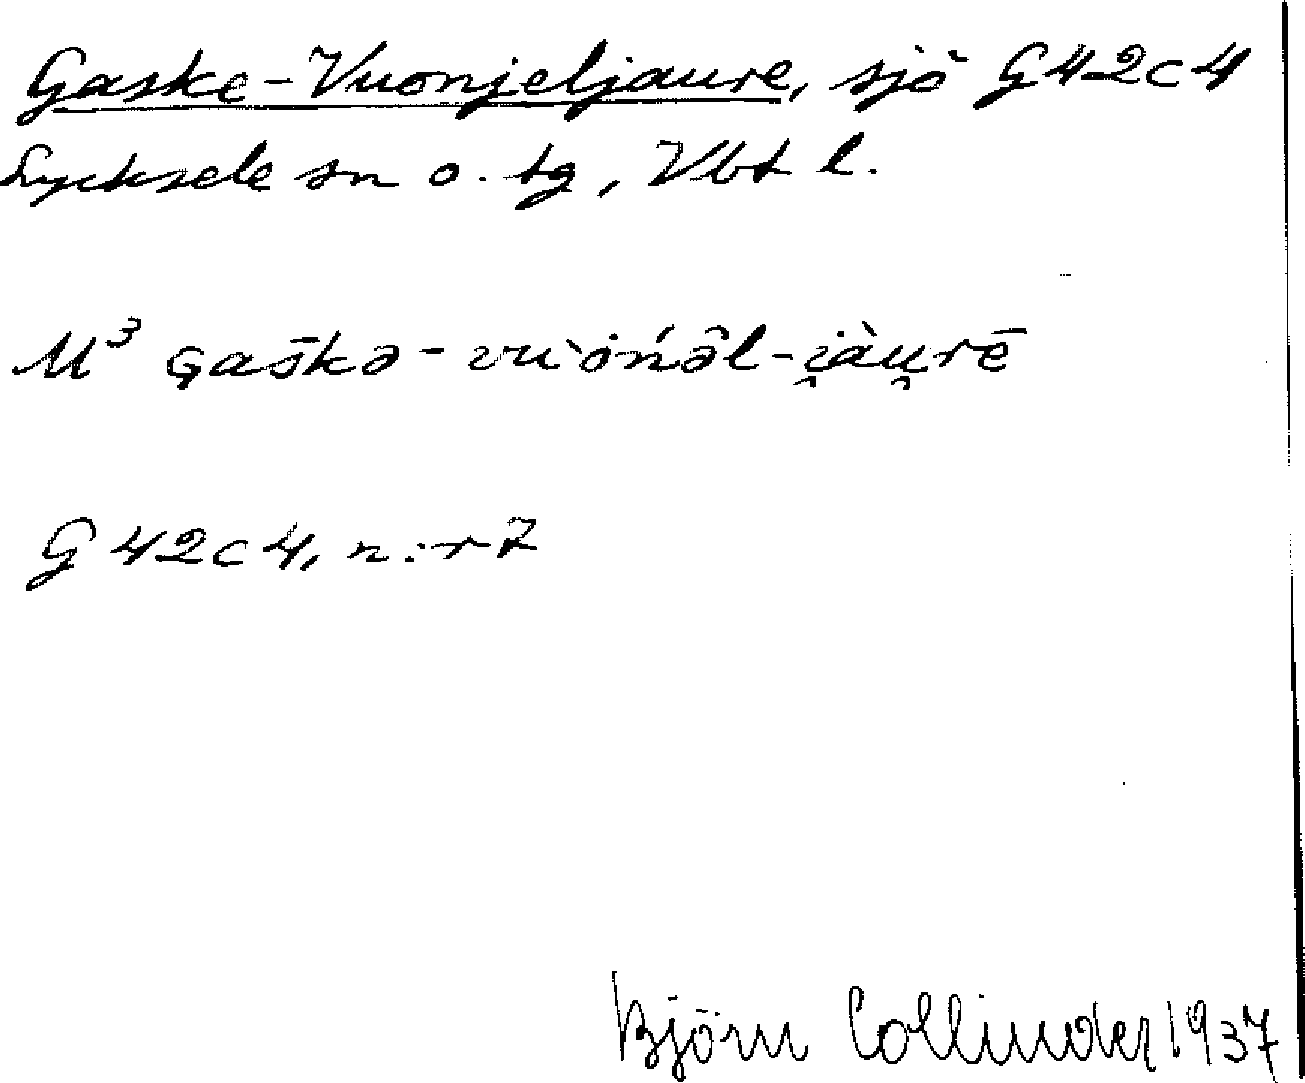 Gaske-Vuonjeljaure, sjö G42c4
Lycksele sn o. tg, Vbt l.
M³ gas̄kə-vu̇̀ȯńə̂l-i̯àu̯rē
G 42c4, n:r 7
Björn Collinder 1937